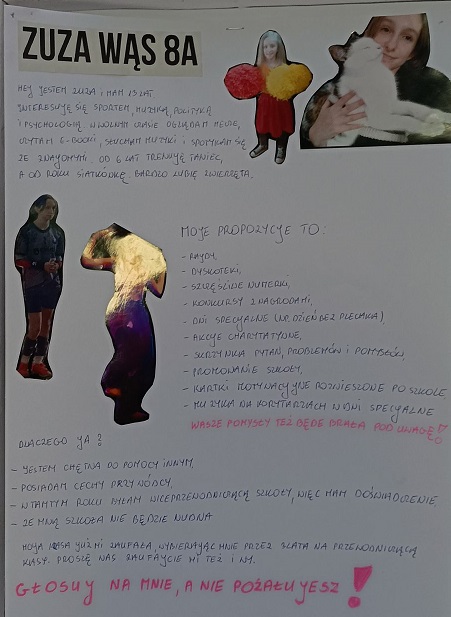 ZUZA WĄS 8A
HEJ JESTEM ZUZA I MAM 13 LAT
INTERESUJĘ SIĘ SPORTEM, MUZYKĄ, POLITYKĄ
I PSYCHOLOGIĄ. W WOLNYM CZASIE OGLĄDAM MECZE,
CZYTAM E-BOOKI, SŁUCHAM MUZYKI I SPOTYKAM SIĘ
ZE ZNAJOMYMI. OD 6 LAT TRENUJĘ TANIEC,
A OD ROKU SIATKÓWKĘ. BARDZO LUBIĘ ZWIERZĘTA.
MOJE PROPOZYCJE TO:
- RAJDY,
- DYSKOTEKI,
- SZCZĘŚLIWE NUMERKI,
- KONKURSY Z NAGRODAMI,
- DNI SPECJALNE (NP. DZIEŃ BEZ PLECAKA),
- AKCJE CHARYTATYWNE,
- SKRZYNKA PYTAŃ, PROBLEMÓW I POMYSŁÓW,
- PROMOWANIE SZKOŁY,
- KARTKI MOTYWACYJNE ROZNIESIONE PO SZKOLE
- MUZYKA NA KORYTARZACH W DNI SPECJALNE
WASZE POMYSŁY TEŻ BĘDĘ BRAŁA POD UWAGĘ!
DLACZEGO JA?
- JESTEM CHĘTNA DO POMOCY INNYM,
- POSIADAM CECHY PRZYWÓDCY,
- W TAMTYM ROKU BYŁAM WICEPRZEWODNICZĄCĄ SZKOŁY, WIĘC MAM DOŚWIADCZENIE
- ZE MNĄ SZKOŁA NIE BĘDZIE NUDNA
MOJA KLASA JUŻ MI ZAUFAŁA, WYBIERAJĄC MNIE PRZEZ 3 LATA NA PRZEWODNICZĄCĄ
KLASY. PROSZĘ WAS ZAUFAJCIE MI TEŻ I WY.
GŁOSUJ NA MNIE, A NIE POŻAŁUJESZ!